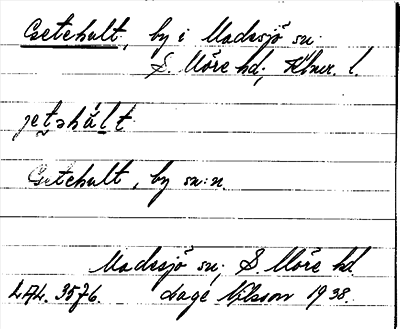 Getehult, by i Madesjö sn.
S. Möre hd, Klmr. l.
jetəhúlt
Getehult, by sn:n.
Madesjö sn, S. Möre hd.
LAL. 3576. Lage Nilsson 1938.